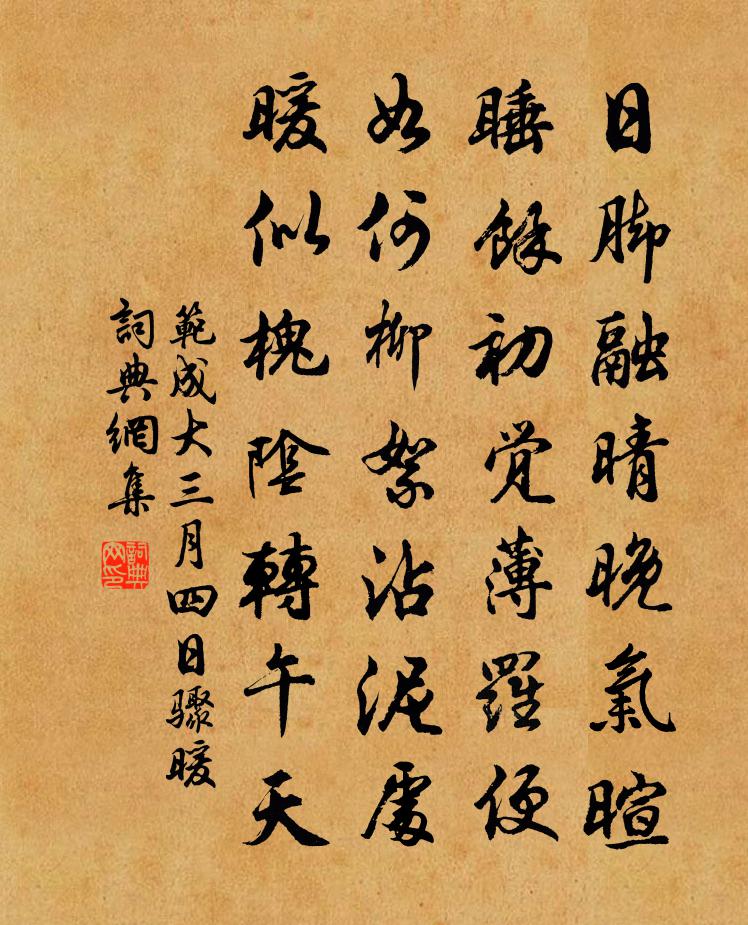 日脚融晴晚氣暄
睡餘初觉薄羅便
如何柳絮沾泥處
暖似槐陰轉午天
範成大三月四日驟暖
詞典網集
詞典
网印